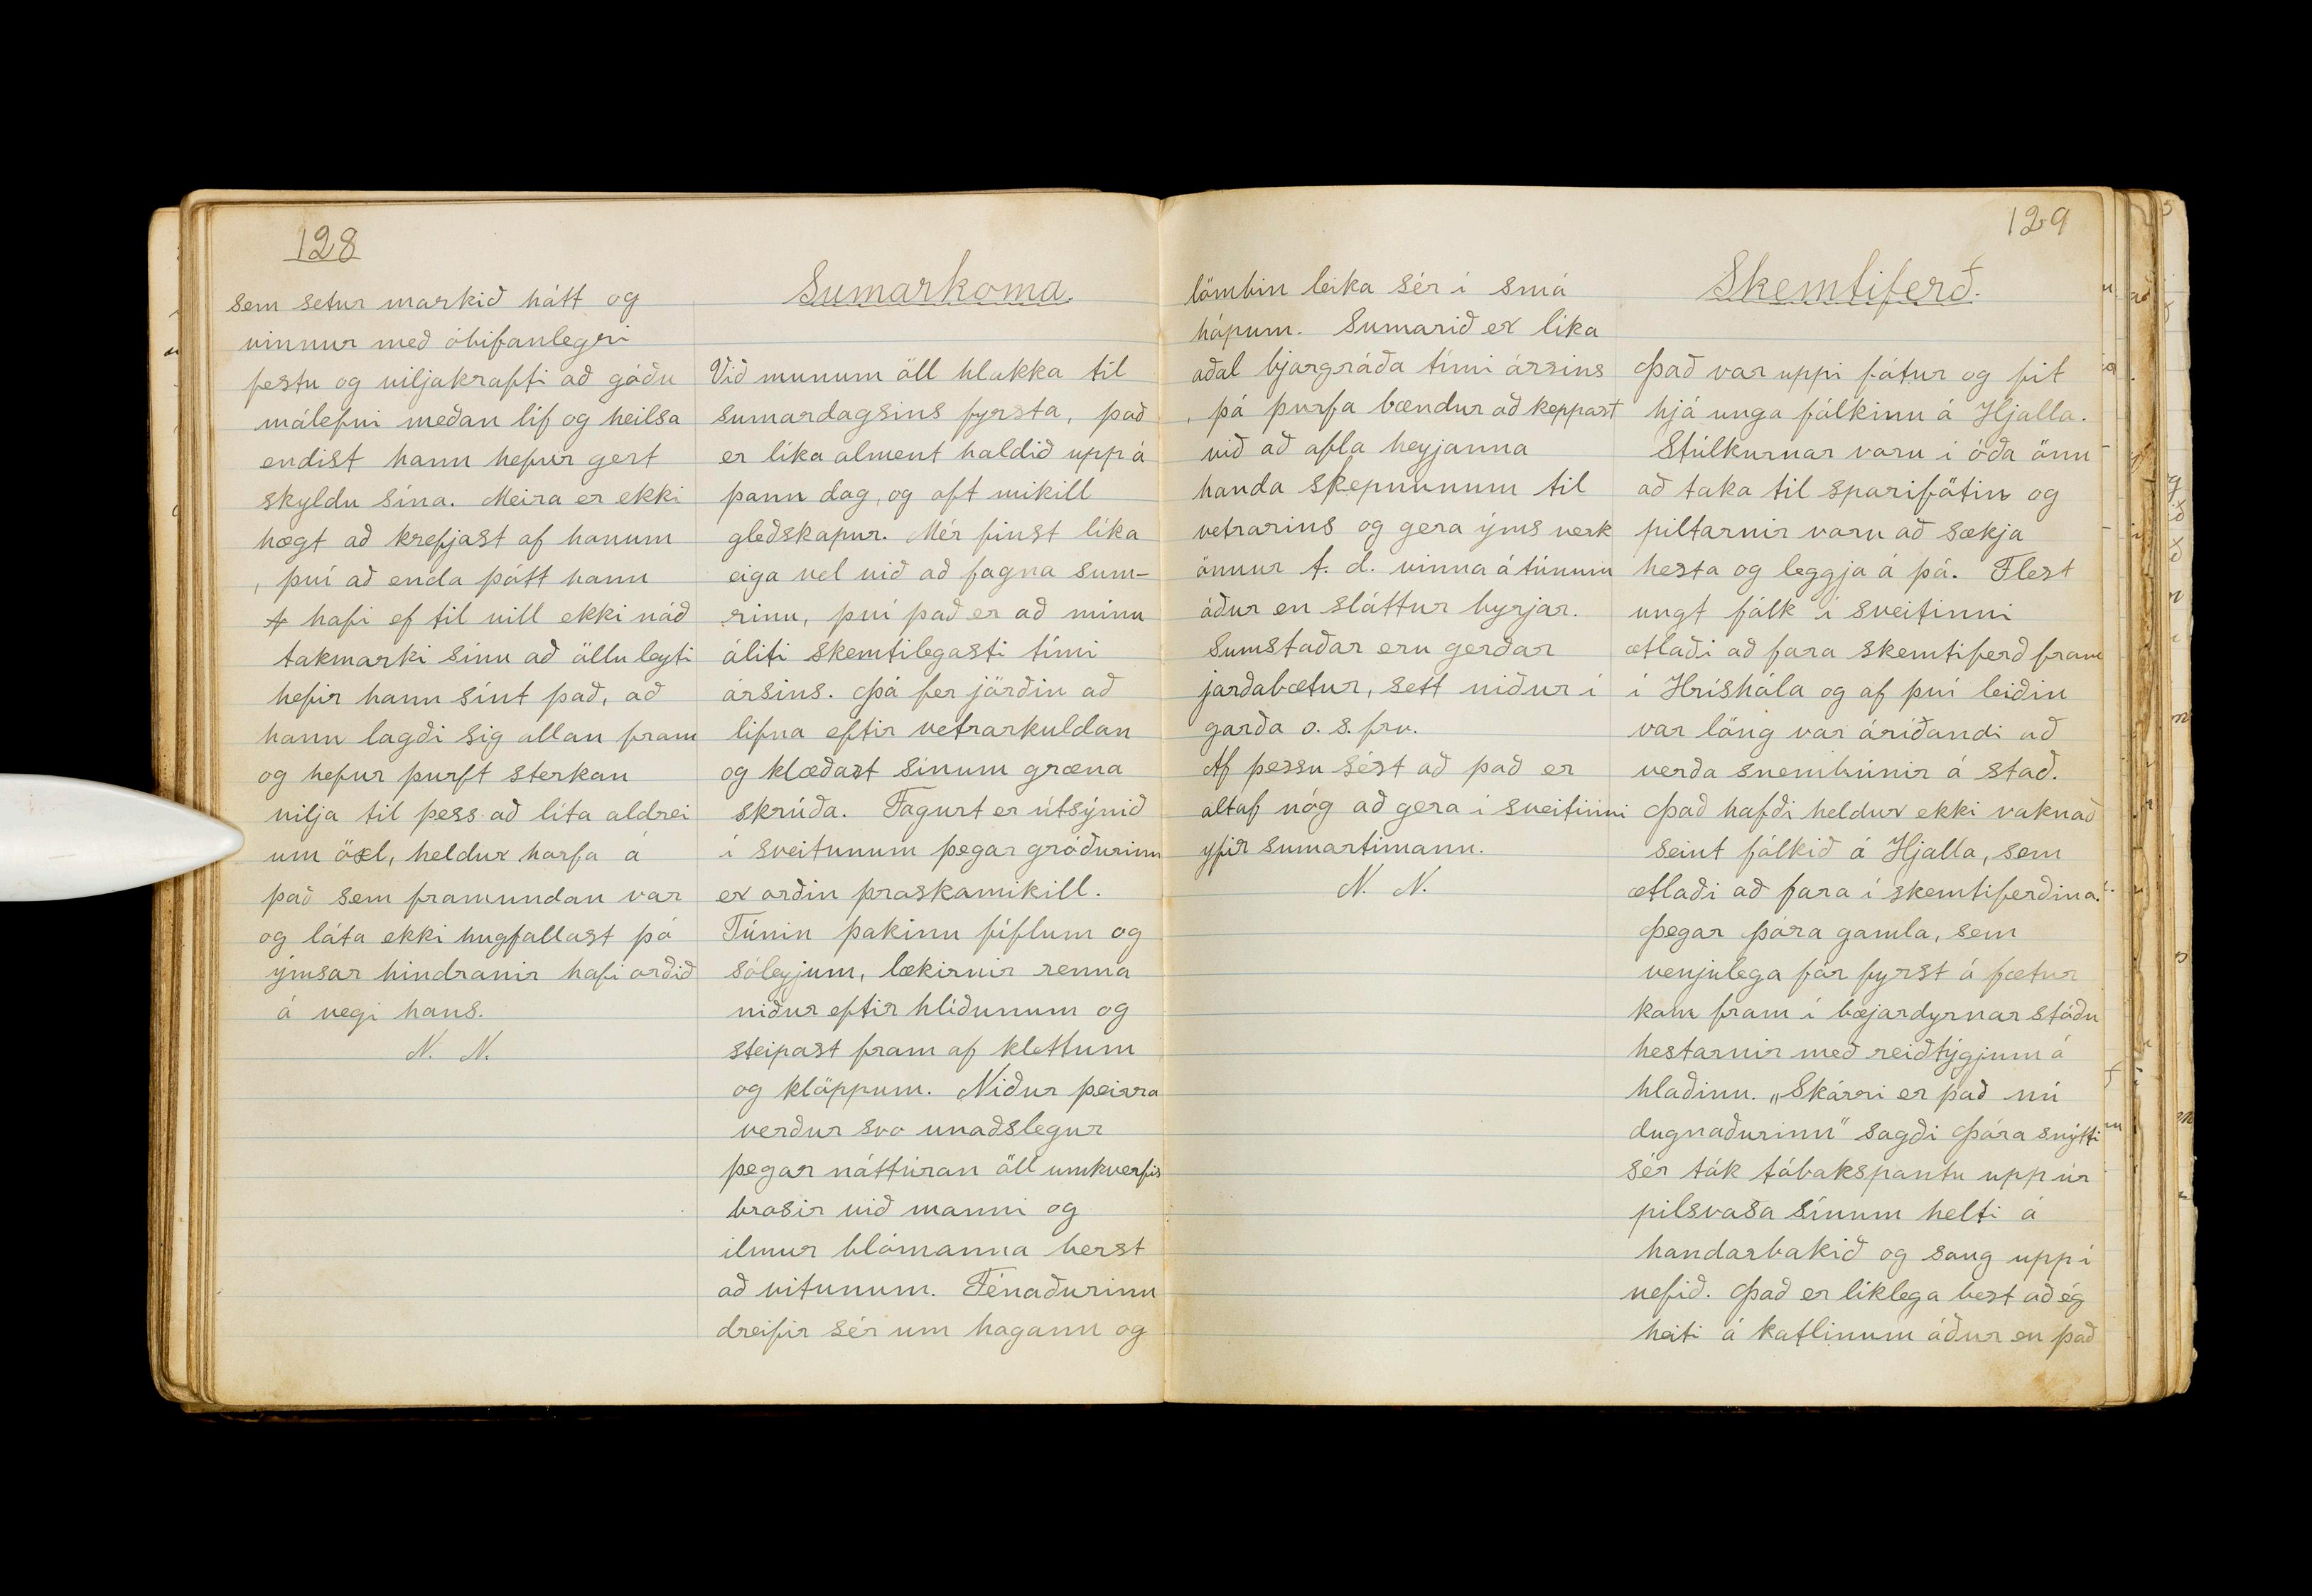 128
sem setur markið hátt og
vinnur með óbifanlegri
festu og viljakrafti að góðu
málefni meðan líf og heilsa
endist hann hefur gert
skyldu sína. Meira er ekki
hægt að krefjast af honum
, því að enda þótt hann
hafi ef til vill ekki náð
takmarki sínu að öllu leyti
hefir hann sínt það, að
hann lagði sig allan fram
og hefur þurft sterkan
vilja til þess að líta aldrei
um öxl, heldur horfa á
það sem framundan var
og láta ekki hugfallast þó
ýmsar hindranir hafi orðið
á vegi hans.
N. N.
Sumarkoma.
Við munum öll hlakka til
sumardagsins fyrsta, það
er líka alment haldið upp á
þann dag, og oft mikill
gleðskapur. Mér finst líka
eiga vel við að fagna sum-
rinu, því það er að mínu
áliti skemtilegasti tími
ársins. Þá fer jörðin að
lifna eftir vetrarkuldan
og klæðast sínum græna
skrúða. Fagurt er útsýnið
í sveitunum þegar gróðurinn
er orðin þroskamikill.
Túnin þakinn fíflum og
sóleyjum, lækirnir renna
niður eftir hlíðunum og
steipast fram af klettum
og klöppum. Niður þeirra
verður svo unaðslegur
þegar náttúran öll umhverfis
brosir við manni og
ilmur blómanna berst
að vitunum. Fénaðurinn
dreifir sér um hagann og
129
lömbin leika sér í smá
hópum. Sumarið er líka
aðal bjargráða tími ársins
, þá þurfa bændur að keppast
við að afla heyjanna
handa skepnunum til
vetrarins og gera ýms verk
önnur t. d. vinna á túnum
áður en sláttur byrjar.
Sumstaðar eru gerðar
jarðabætur, sett niður í
garða o. s. frv.
Af þessu sést að það er
altaf nóg að gera í sveitinni
yfir sumartímann.
N. N.
Skemtiferð.
Það var uppi fótur og fit
hjá unga fólkinu á Hjalla.
Stúlkurnar voru í óða önn
að taka til sparifötin og
piltarnir voru að sækja
hesta og leggja á þá. Flest
ungt fólk í sveitinni
ætlaði að fara skemtiferð fram
í Hríshóla og af því leiðin
var löng var áríðandi að
verða snembúnir á stað.
Það hafði heldur ekki vaknað
seint fólkið á Hjalla, sem
ætlaði að fara í skemtiferðina.
Þegar Þóra gamla, sem
venjulega fór fyrst á fætur
kom fram í bæjardyrnar stóðu
hestarnir með reiðtýgjum á
hlaðinu. „Skárri er það nú
dugnaðurinn" sagði Þóra snýtti
sér tók tóbakspontu upp úr
pilsvasa sínum helti á
handarbakið og saug upp í
nefið. Það er líklega best að ég
heiti á katlinum áður en það